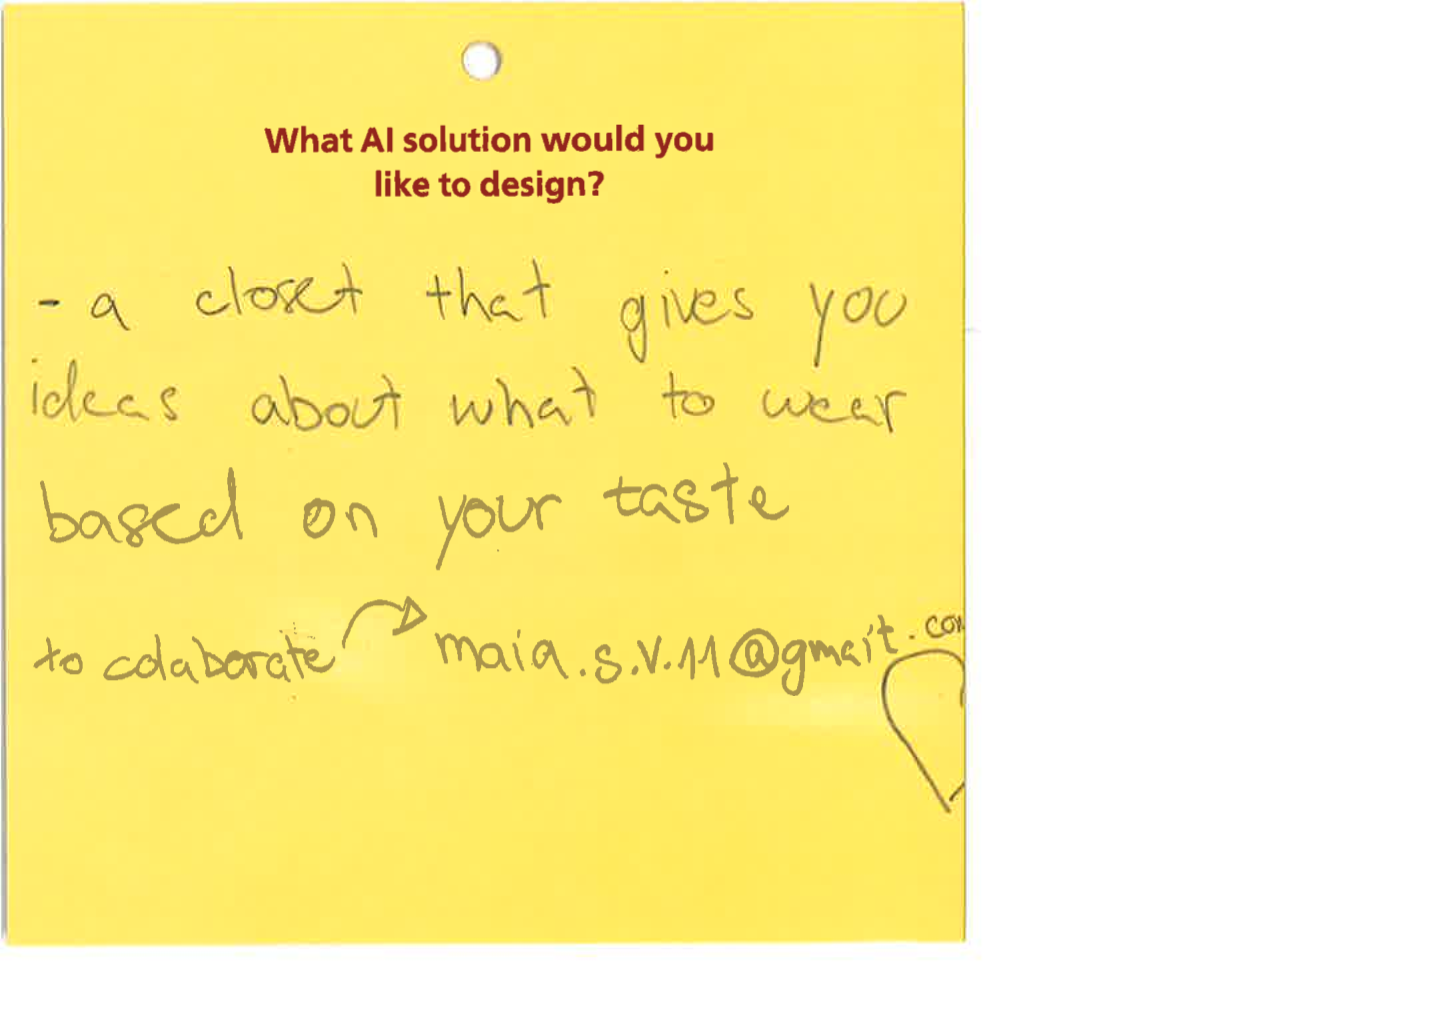 What AI solution would you
like to design?
- a closet that gives you
ideas about what to wear
based on your taste
to colaborate maia.s.v.11@gmait.com